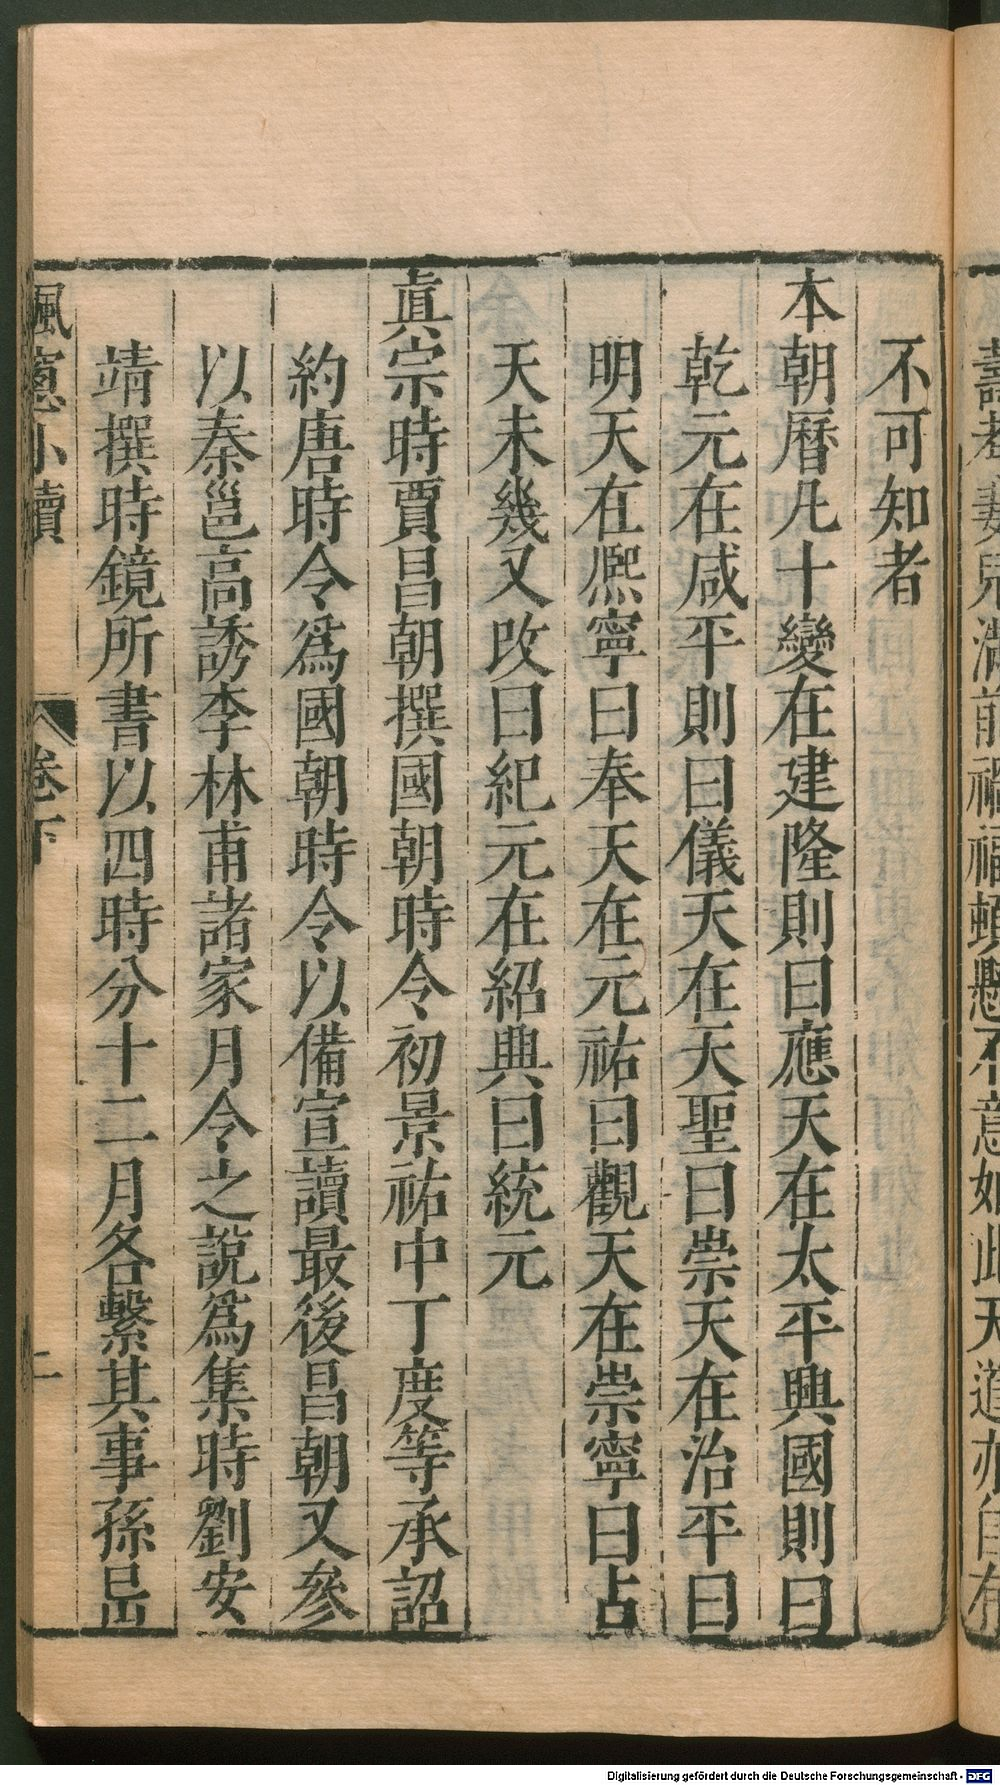 壽者妻兒滿前禍福頓懸不意如此天道亦自有
不可知者
本朝曆凡十變在建隆則曰應天在太平興國則曰
乾元在咸平則曰儀天在天聖曰崇天在治平曰
明天在熈寧曰奉天在元祐曰觀天在崇寧曰占
天未幾又改曰紀元在紹興曰統元
真宗時賈昌朝撰國朝時令初景祐中丁度等承詔
約唐時令爲國朝時令以備宣讀最後昌朝又參
以秦邕高誘李林甫諸家月令之說爲集時劉安
靖撰時鏡所書以四時分十二月各繫其事孫岊
楓窻小牘 卷下 二
Digitalisierung gefördert durch die Deutsche Forschungsgemeinschaft - DFG